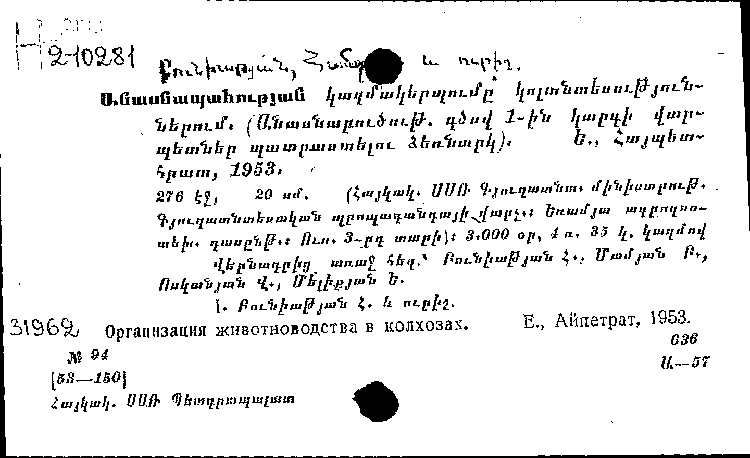 2-10281
Բունիաթյան, Համբ և ուրիշ.
Անասնապահության կազմակերպումը կոլտնտեսություն-
ներում. (Անասնաբուծութ. գծով 1-ին կարգի վար-
պետներ պատրաստելու ձեռնարկ). Ե., Հայպետ-
հրատ, 1953.
276 էջ, 20 սմ. (Հայկակ. ՍՍՌ Գյուղատնտ. մինիստրութ.
Գյուղատնտեսական պրոպագանդայի վարչ.: Եռամյա ագրոզոո-
տեխ. դասընթ.: Ուս. 3-րդ տարի): 3.000 օր, 4 ռ. 35 կ. կազմով
Վերնագրից առաջ հեղ.՝ Բունիաթյան Հ., Մամյան Բ.,
Ոսկանյան Վ., Մելիքյան Ե.
I. Բունիաթյան Հ. և ուրիշ.
31962 Организация животноводства в колхозах. Е., Айпетрат, 1953.
№ 94 636
[53—150] Ա.—57
Հայկակ. ՍՍՌ Պետգրապալատ